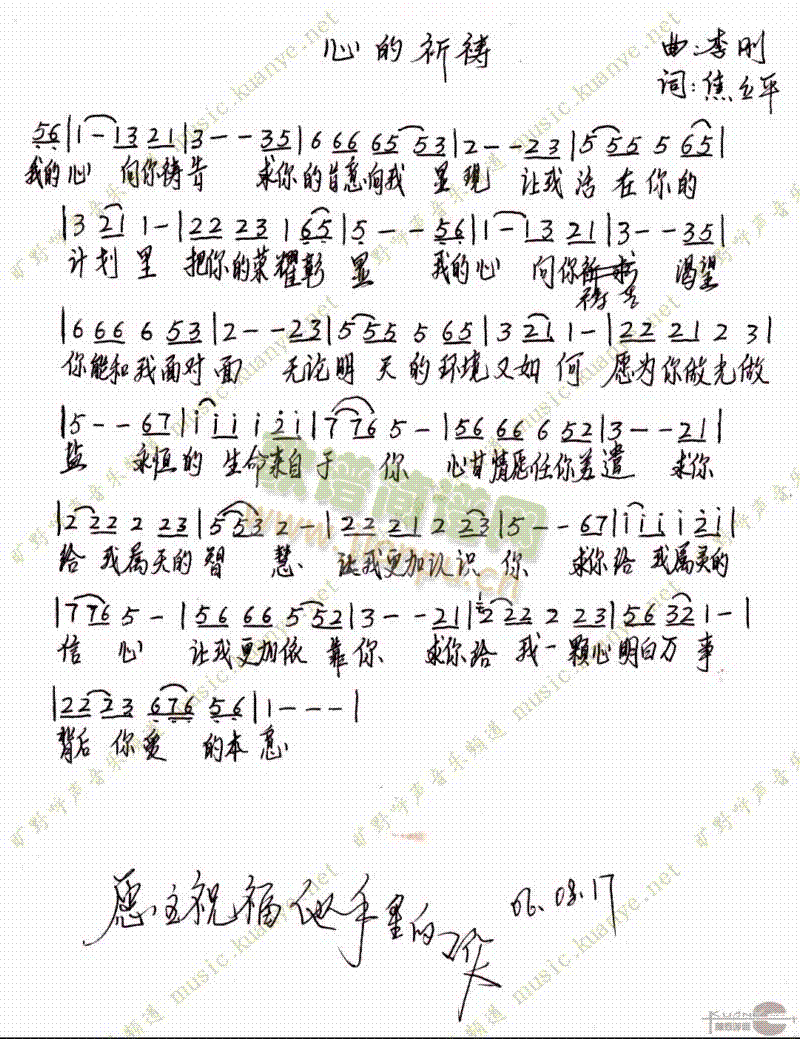 心的祈祷
曲:李刚
词:焦立平
56|1-13 21|3--35|6 66 65 53|2--23|5 55 5 65|
我的心 向你祷告 求你的旨意向我 显现 让我活在你的
|3 21 1-|22 23 1 65|5--56|1-13 21|3--35|
计划里 把你的荣耀彰显 我的心 向你 渴望
祷告
|6 66 6 53|2--23|5 55 5 65|3 21 1-|22 21 2 3|
你能和我面对面 无论明天的环境又如何 愿为你做光做
|5--67|i ii i 2i|7 76 5-|56 66 6 52|3--21|
盐 永恒的生命来自于你 心甘情愿任你差遣 求你
|2 22 2 23|5 53 2-|22 21 2 23|5--67|i ii i 2i|
给我属天的智慧 让我更加认识你 求你给我属灵的
|7 76 5-|56 66 5 52|3--21|2 22 2 23|56 32 1-|
信心 让我更加依靠你 求你给我一颗心明白万事
|22 23 676 56|1---|
背后你爱的本意
愿主祝福他手里的
06.08.17
歌谱简谱网
www.jianpu.cn
旷野呼声音乐频道 music.kuanye.net
KUANYE